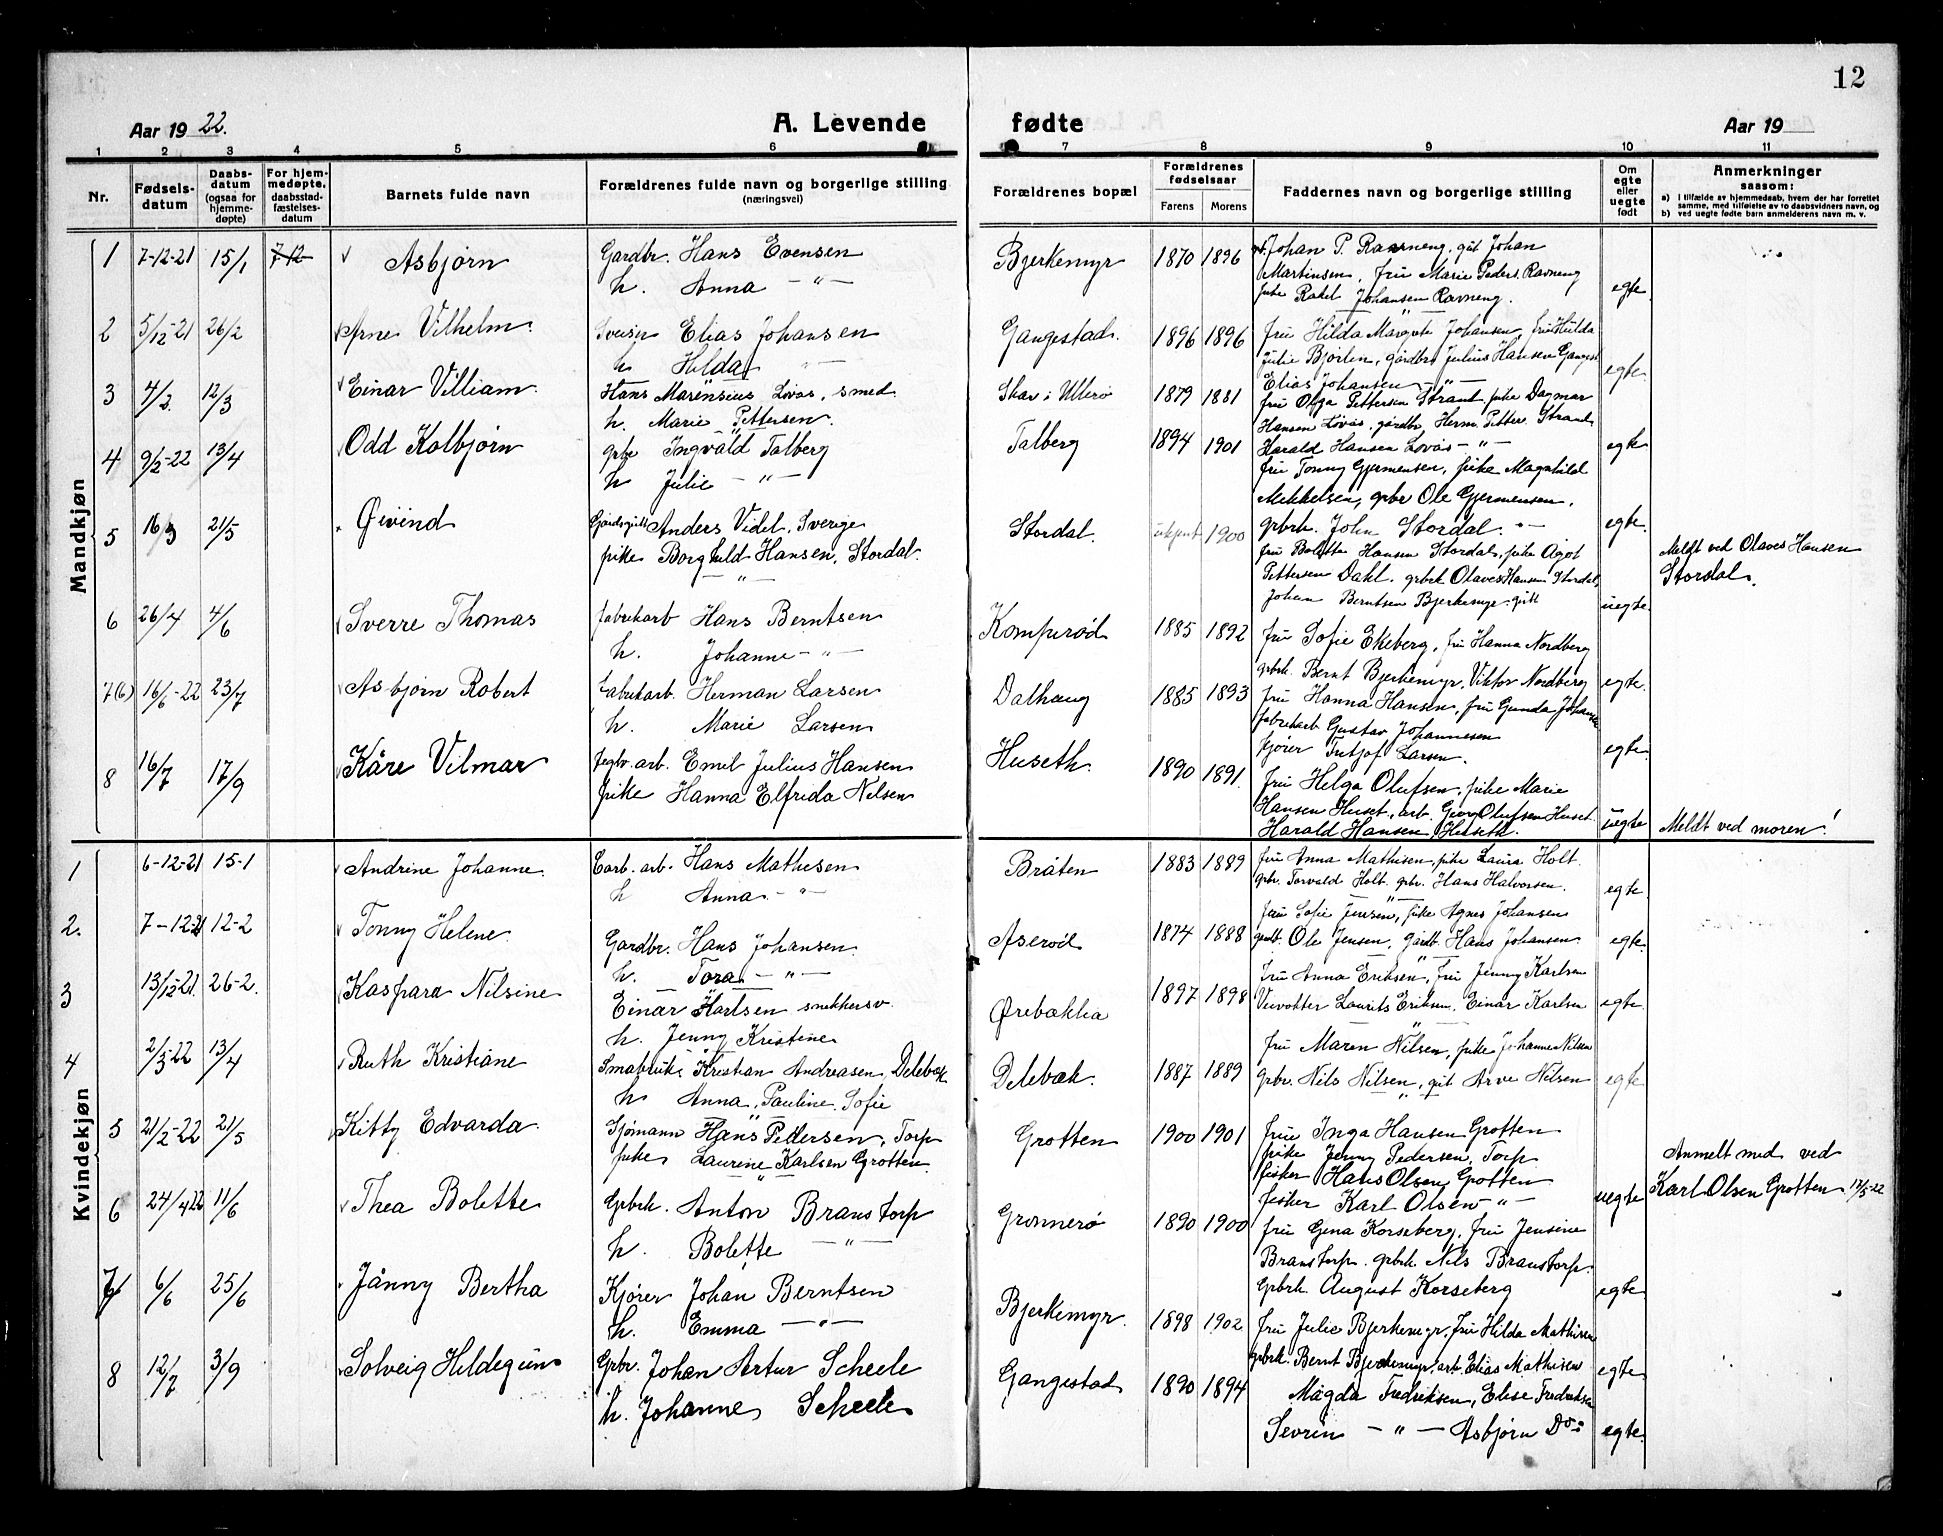 12
Aar 1922.
A. Levende
fødte
Aar 19
1 2 3 4 5 6 7 8 9 10 11
Nr.
Fødsels-
datum
Daabs-
datum
(ogsaa for
hjemme-
døpte)
For hjem-
medøpte,
daabsstad-
fæstelses-
datum
Barnets fulde navn
Forældrenes fulde navn og borgerlige stilling
(næringsvei)
Forældrenes bopæl
Forældrenes
fødselsaar
Farens Morens
Faddernes navn og borgerlige stilling
Om
egte
eller
uegte
født
Anmerkninger
saasom:
a) i tilfælde av hjemmedaab, hvem der har forrettet
samme, med tilføielse av to daabsvidners navn, og
b) ved uegte fødte barn anmelderens navn m. v.
Mandkjøn
1 7-12-21 15/1 7-12 Asbjørn Gardbr. Hans Evensen Bjerkemyr 1870 1896 Johan P. Ravneng, gut Johan
h. Anna — " — Martinsen, fru Marie Peders. Ravneng
pike Rakel Johansen Ravneng. egte.
2 5/12-21 26/2 Arne Vilhelm. Elias Johansen Gangestad. 1896 1896 fru Hilda Margrete Johansen, fru Hilda
h Hilda — " — Julie Bjørlen, gårdbr Julius Hansen Gangest
Elias Johansen — " — egte.
3 4/2. 12/3 Einar Villiam. Hans Marensius Lövås, smed. Skav i Ullerø 1879 1881 fru Olga Pettersen Strand, pike Dagmar
h. Marie Pettersen. Hansen Lövås, gårdbr. Herm. Petters. Strand
Harald Hansen Lovås — " — egte
4 9/2-22 13/4 Odd Kolbjørn grbr Ingvald Talberg Talberg 1894 1901
h Julie — " — fru Tonny Gjermensen, pike Magnhild
Mikkelsen, grbr Ole Gjermensen.
grbrk. John Stordal. egte.
5 16/3 21/5 Øivind Gårdsgutt Anders Videl, Sverige Stordal. ukjent 1900
pike Borghild Hansen, Stordal. fru Bolette Hansen Stordal, pike Agot
Pettersen Dahl. grbrk Olaves Hansen Stordal,
Johan Berntsen Bjerkemyr. gutt uegte. Meldt ved Olaves Hansen
Stordal.
6 26/4 4/6 Sverre Thomas fabrikarb Hans Berntsen Komperød 1885 1892 fru Sofie Ekeberg, fru Hanna Nordberg
h. Johanne — " — grbrk. Bernt Bjerkemyr, Viktor Nordberg egte.
7(6) 16/6-22 23/7 Asbjørn Robert Fabrikarb. Herman Larsen Dalhaug 1885 1893 fru Hanna Hansen, fru Gunda Johanse
h. Marie Larsen fabrikarb Gustav Johannesen
kjører Fritjof Larsen. egte
8 16/7 17/9 Kåre Vilmar Teglv. arb. Emil Julius Hansen Huseth. 1890 1891. fru Helga Olufsen, pike Marie
pike Hanna Elfrida Nilsen Hansen Huset, arb. Georg Olufsen Huset.
Harald Hansen, Huseth. uegte Meldt ved moren!
Kvindekjøn
1 6-12-21 15-1 Andrine Johanne. arb. Hans Mathisen Bråten 1883 1889 fru Anna Mathisen, pike Laura Holt.
h Anna — " grbr. Torvald Holt. grbr. Hans Halvorsen. egte
2. 7-12-21 12-2 Tonny Helene. Gardbr. Hans Johansen. Aserød 1874 1888 fru Sofie Jensen, pike Agnes Johansen
h. Tora — " — gardb. Ole Jensen, gårdb. Hans Johansen egte.
3 13/12-21. 26-2. Kaspara Nilsine Einar Karlsen snekkersv. Ørebakkia 1897 1898 Fru Anna Eriksen, Fru Jenny Karlsen
h. Jenny Kristine Veivokter Laurits Eriksen, Einar Karlsen egte.
4 2/3-22 13/4 Ruth Kristiane Småbruk. Kristian Andreasen, Delebæk Delebæk. 1887 1889 fru Maren Nilsen, pike Johanne Nilsen
h Anna, Pauline, Sofie grbr. Nils Nilsen, gut Arve Nilsen egte
5 21/2-22 21/5 Kitty Edvarda Sjømann Hans Pedersen, Torp Grotten 1900 1901 frue Inga Hansen Grotten
pike, Laurine Karlsen Grotten. pike Jenny Pedersen, Torp
fisker Hans Olsen, Grotten
fisker Karl Olsen — " — uegte Anmelt med ved
Karl Olsen Grotten 17/5-22
6 24/4 22 11/6 Thea Bolette Grbrk. Anton Branstorp Grønnerø 1890 1900 fru Gina Korseberg, fru Jensine
h. Bolette — " — Branstorp. grbrk Nils Branstorp.
Grbrk August Korseberg egte
7 6/6 25/6 Jånny Bertha Kjører Johan Berntsen Bjerkemyr. 1898 1902 fru Julie Bjerkemyr, fru Hilda Mathisen
h. Emma — " — grbrk. Bernt Bjerkemyr, arb. Elias Mathisen egte
8 12/7 3/9 Solveig Hildegun Grbr. Johan Artur Scheele Gangestad 1890 1894 Magda Fredriksen, Elise Fredriksen
h. Johanne Scheele Sevrin — " — Asbjørn Do: egte.